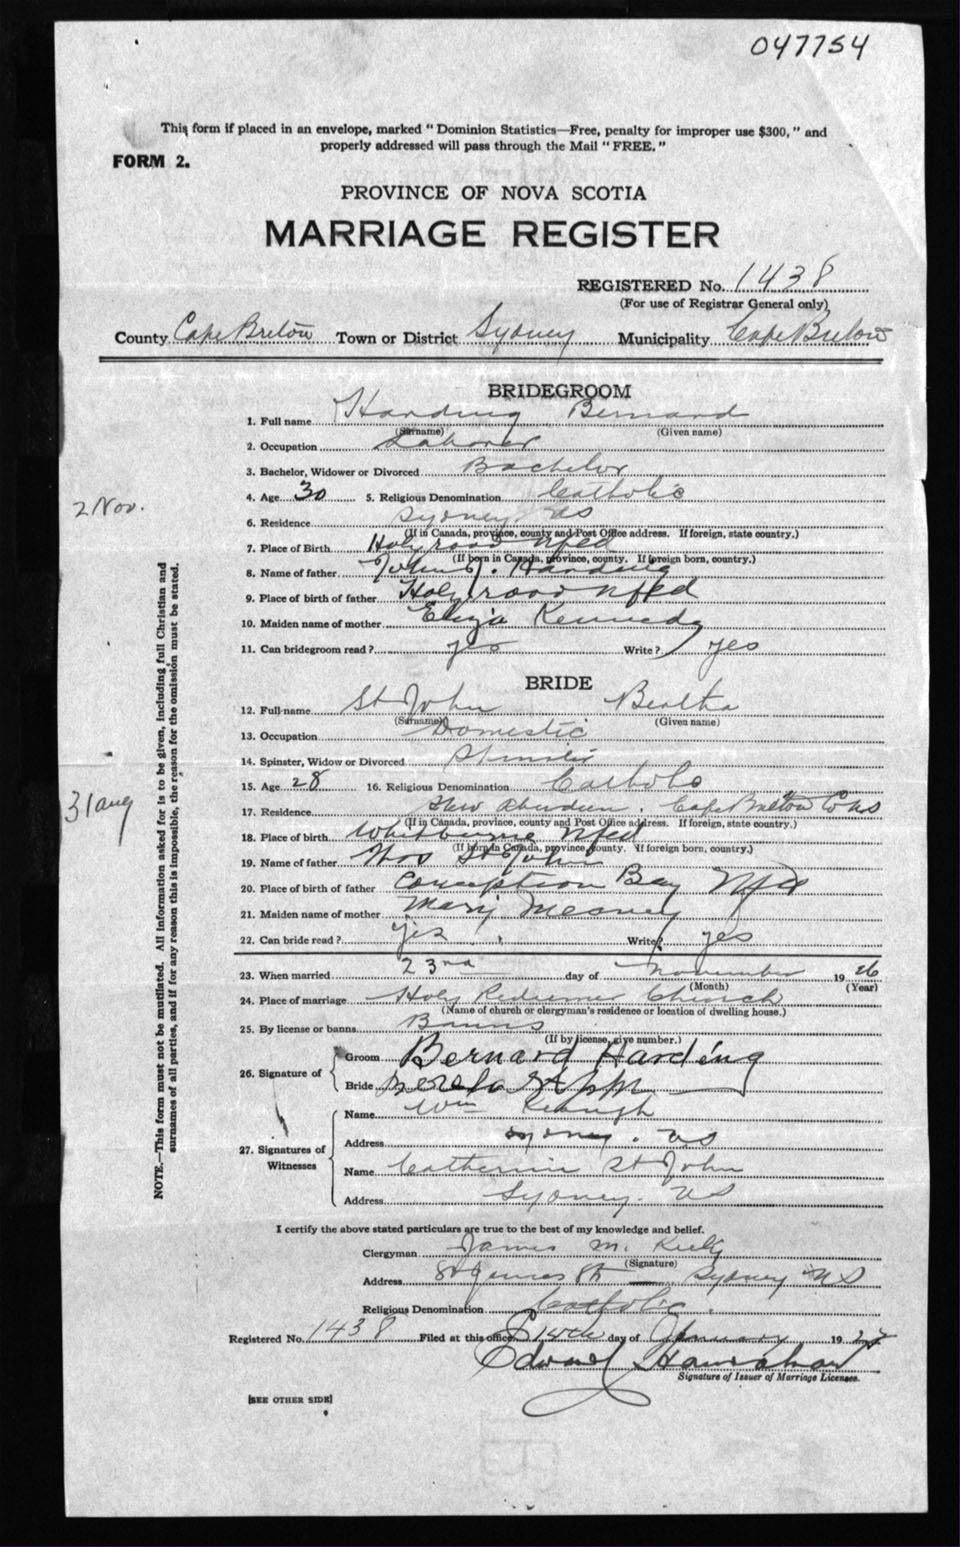 047754
This form if placed in an envelope, marked "Dominion Statistics—Free, penalty for improper use $300," and
properly addressed will pass through the Mail "FREE."
FORM 2.
PROVINCE OF NOVA SCOTIA
MARRIAGE REGISTER
REGISTERED No. 1438
(For use of Registrar General only)
County Cape Breton Town or District Sydney Municipality Cape Breton
BRIDEGROOM
1. Full name Harding Bernard
(Surname) (Given name)
2. Occupation Laborer
3. Bachelor, Widower or Divorced Bachelor
4. Age 30 5. Religious Denomination Catholic
2 Nov.
6. Residence Sydney NS
(If in Canada, province, county and Post Office address. If foreign, state country.)
7. Place of Birth Holyrood Nfld
(If born in Canada, province, county. If foreign born, country.)
8. Name of father John J. Harding
9. Place of birth of father Holyrood Nfld
10. Maiden name of mother Eliza Kennedy
11. Can bridegroom read? yes Write? yes
BRIDE
12. Full name St John Beatha
(Surname) (Given name)
13. Occupation Domestic
14. Spinster, Widow or Divorced Spinster
15. Age 28 16. Religious Denomination Catholc
31 aug
17. Residence New Aberdeen. Cape Breton Co NS
(If in Canada, province, county and Post Office address. If foreign, state country.)
18. Place of birth Whitbourne Nfld
(If born in Canada, province, county. If foreign born, country.)
19. Name of father Thos St John
20. Place of birth of father Conception Bay Nfld
21. Maiden name of mother Mary Meaney
22. Can bride read? yes Write? yes
23. When married 23rd day of November 1926
(Month) (Year)
24. Place of marriage Holy Redeemer Church
(Name of church or clergyman's residence or location of dwelling house.)
25. By license or banns Banns
(If by license, give number.)
26. Signature of
Groom Bernard Harding
Bride
27. Signatures of Witnesses
Name Wm Keough
Address Sydney. NS
Name Catherine St John
Address Sydney. NS
NOTE.—This form must not be mutilated. All information asked for is to be given, including full Christian and
surnames of all parties, and if for any reason this is impossible, the reason for the omission must be stated.
I certify the above stated particulars are true to the best of my knowledge and belief.
Clergyman James M. Kiely
(Signature)
Address Sydney NS
Religious Denomination Catholic.
Registered No. 1438 Filed at this office 14th day of January 1927
Edward Hanrahan
Signature of Issuer of Marriage Licenses.
[SEE OTHER SIDE]